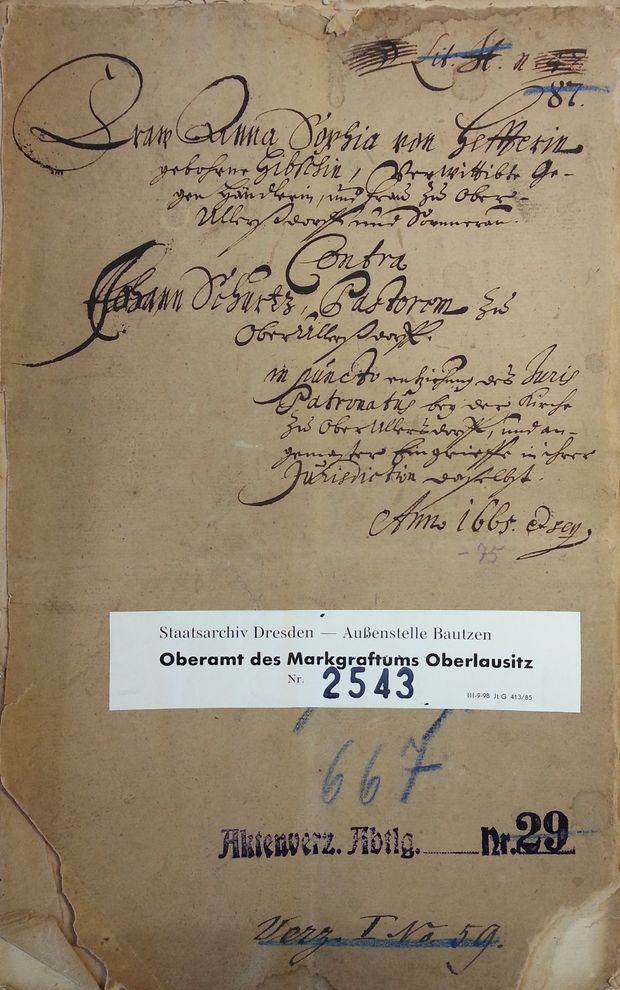 Lit. H. n
87.
Fraw Anna Sophia von
gebohrne Gibschin, Verwittibte Ge-
gen Händlerin, und Frau zu Ober-
Ullerßdorff und Sommerau.
Contra
Johann Schurtz, Pastorem zu
OberUllerßdorff.
in puncto entziehung des Juris
Patronatus bey der Kirche
zu OberUllersdorff, und an-
gemaster Eingrieffe in ihrer
Jurisdiction daselbst.
Anno 1665. et seq.
- 75
Staatsarchiv Dresden — Außenstelle Bautzen
Oberamt des Markgraftums Oberlausitz
Nr. 2543
III-9-98 Jt G 413/85
667
Aktenverz. Abtlg. Nr. 29
Verz. I No 59.